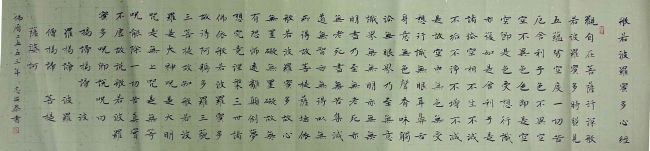 般若波羅蜜多心經
觀自在菩薩行深般
若波羅蜜多時照見
五蘊皆空度一切苦
厄舍利子色不異空
空不異色色即是空
空即是色受想行識
亦復如是舍利子是
諸法空相不生不滅
不垢不淨不增不減
是故空中無色無受
想行識無眼耳鼻舌
身意無色聲香味觸
法無眼界乃至無意
識界無無明亦無無
明盡乃至無老死亦
無老死盡無苦集滅
道無智亦無得以無
所得故菩提薩埵依
般若波羅蜜多故心
無罣礙無罣礙故無
有恐怖遠離顛倒夢
想究竟涅槃三世諸
佛依般若波羅蜜多
故得阿耨多羅三藐
三菩提故知般若波
羅蜜多是大神咒是大明
咒是無上咒是無等
等咒能除一切苦真實
不虛故說般若波羅
蜜多咒即說咒曰
揭諦揭諦 波
羅揭諦 波羅
僧揭諦 菩提
薩婆訶
佛曆二五五三年 書